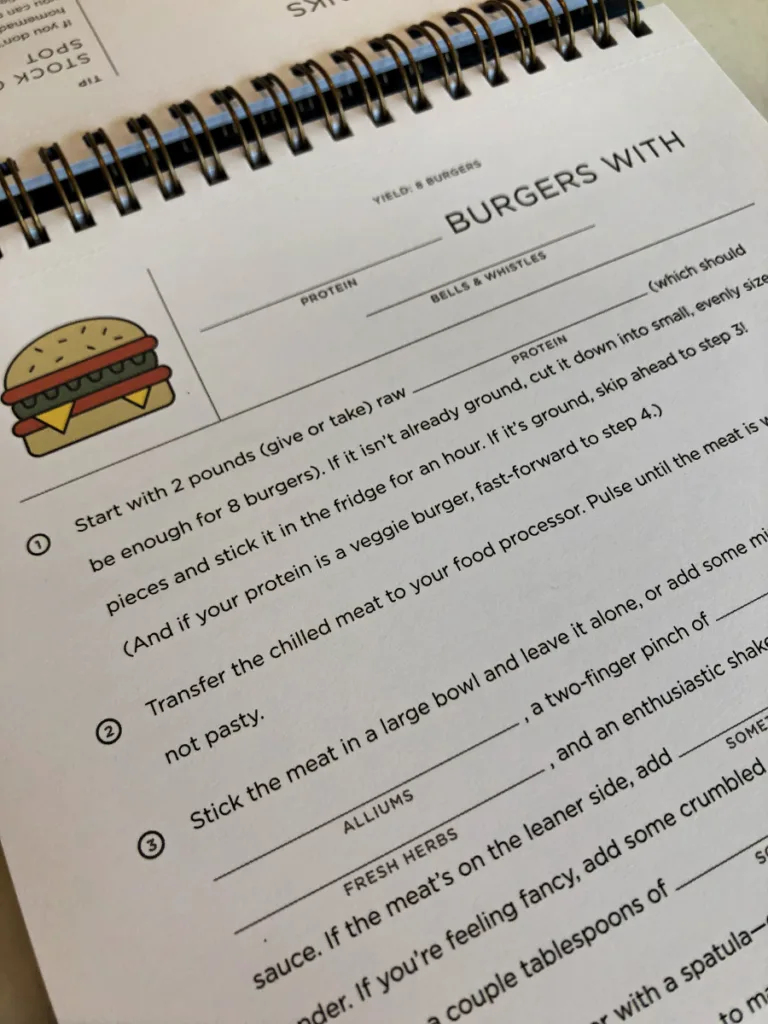 homemade
you can s
if you don'
STOCK
SPOT
TIP
YIELD: 8 BURGERS
BURGERS WITH
PROTEIN
BELLS & WHISTLES
1 Start with 2 pounds (give or take) raw (which should
PROTEIN
be enough for 8 burgers). If it isn't already ground, cut it down into small, evenly size
pieces and stick it in the fridge for an hour. If it's ground, skip ahead to step 3!
(And if your protein is a veggie burger, fast-forward to step 4.)
2 Transfer the chilled meat to your food processor. Pulse until the meat is
not pasty.
3 Stick the meat in a large bowl and leave it alone, or add some mi
, a two-finger pinch of
ALLIUMS
, and an enthusiastic shake
FRESH HERBS
sauce. If the meat's on the leaner side, add
SOME
nder. If you're feeling fancy, add some crumbled
a couple tablespoons of
r with a spatula—
to ma